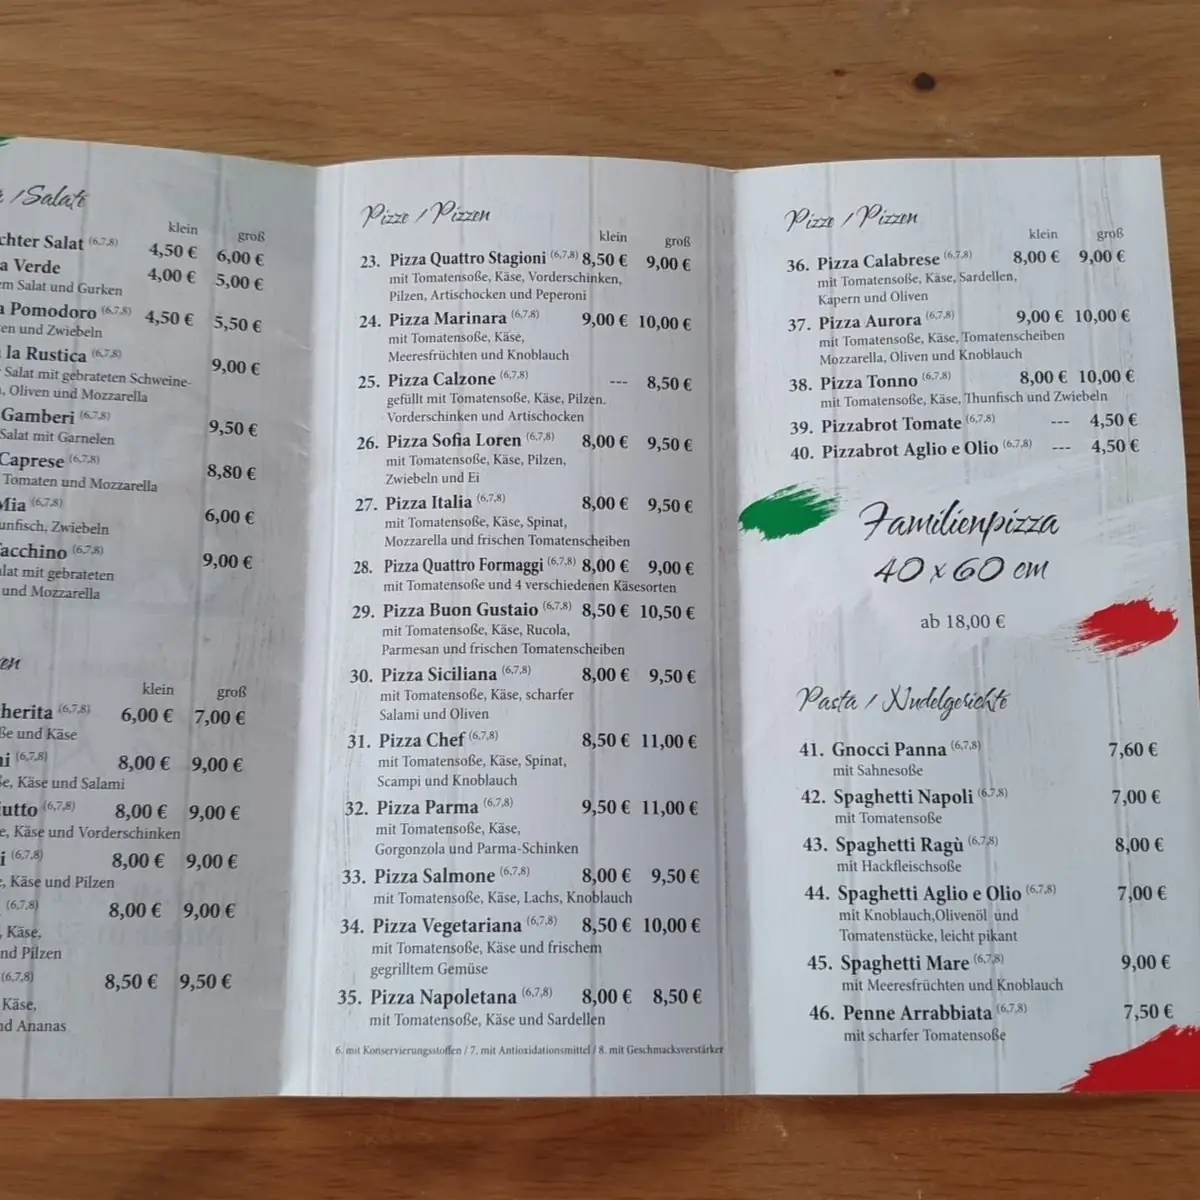 /Salate
klein groß
chter Salat (6,7,8) 4,50 € 6,00 €
a Verde 4,00 € 5,00 €
em Salat und Gurken
a Pomodoro (6,7,8) 4,50 € 5,50 €
ten und Zwiebeln
la Rustica (6,7,8) 9,00 €
Salat mit gebrateten Schweine-
, Oliven und Mozzarella
Gamberi (6,7,8) 9,50 €
Salat mit Garnelen
Caprese (6,7,8) 8,80 €
Tomaten und Mozzarella
Mia (6,7,8) 6,00 €
unfisch, Zwiebeln
acchino (6,7,8) 9,00 €
lat mit gebrateten
und Mozzarella
en
klein groß
herita (6,7,8) 6,00 € 7,00 €
ße und Käse
i (6,7,8) 8,00 € 9,00 €
e, Käse und Salami
iutto (6,7,8) 8,00 € 9,00 €
e, Käse und Vorderschinken
i (6,7,8) 8,00 € 9,00 €
, Käse und Pilzen
(6,7,8) 8,00 € 9,00 €
, Käse,
nd Pilzen
(6,7,8) 8,50 € 9,50 €
Käse,
nd Ananas
Pizze / Pizzen
klein groß
23. Pizza Quattro Stagioni (6,7,8) 8,50 € 9,00 €
mit Tomatensoße, Käse, Vorderschinken,
Pilzen, Artischocken und Peperoni
24. Pizza Marinara (6,7,8) 9,00 € 10,00 €
mit Tomatensoße, Käse,
Meeresfrüchten und Knoblauch
25. Pizza Calzone (6,7,8) --- 8,50 €
gefüllt mit Tomatensoße, Käse, Pilzen,
Vorderschinken und Artischocken
26. Pizza Sofia Loren (6,7,8) 8,00 € 9,50 €
mit Tomatensoße, Käse, Pilzen,
Zwiebeln und Ei
27. Pizza Italia (6,7,8) 8,00 € 9,50 €
mit Tomatensoße, Käse, Spinat,
Mozzarella und frischen Tomatenscheiben
28. Pizza Quattro Formaggi (6,7,8) 8,00 € 9,00 €
mit Tomatensoße und 4 verschiedenen Käsesorten
29. Pizza Buon Gustaio (6,7,8) 8,50 € 10,50 €
mit Tomatensoße, Käse, Rucola,
Parmesan und frischen Tomatenscheiben
30. Pizza Siciliana (6,7,8) 8,00 € 9,50 €
mit Tomatensoße, Käse, scharfer
Salami und Oliven
31. Pizza Chef (6,7,8) 8,50 € 11,00 €
mit Tomatensoße, Käse, Spinat,
Scampi und Knoblauch
32. Pizza Parma (6,7,8) 9,50 € 11,00 €
mit Tomatensoße, Käse,
Gorgonzola und Parma-Schinken
33. Pizza Salmone (6,7,8) 8,00 € 9,50 €
mit Tomatensoße, Käse, Lachs, Knoblauch
34. Pizza Vegetariana (6,7,8) 8,50 € 10,00 €
mit Tomatensoße, Käse und frischem
gegrilltem Gemüse
35. Pizza Napoletana (6,7,8) 8,00 € 8,50 €
mit Tomatensoße, Käse und Sardellen
6. mit Konservierungsstoffen / 7. mit Antioxidationsmittel / 8. mit Geschmacksverstärker
Pizze / Pizzen
klein groß
36. Pizza Calabrese (6,7,8) 8,00 € 9,00 €
mit Tomatensoße, Käse, Sardellen,
Kapern und Oliven
37. Pizza Aurora (6,7,8) 9,00 € 10,00 €
mit Tomatensoße, Käse, Tomatenscheiben
Mozzarella, Oliven und Knoblauch
38. Pizza Tonno (6,7,8) 8,00 € 10,00 €
mit Tomatensoße, Käse, Thunfisch und Zwiebeln
39. Pizzabrot Tomate (6,7,8) --- 4,50 €
40. Pizzabrot Aglio e Olio (6,7,8) --- 4,50 €
Familienpizza
40 x 60 cm
ab 18,00 €
Pasta / Nudelgerichte
41. Gnocci Panna (6,7,8) 7,60 €
mit Sahnesoße
42. Spaghetti Napoli (6,7,8) 7,00 €
mit Tomatensoße
43. Spaghetti Ragù (6,7,8) 8,00 €
mit Hackfleischsoße
44. Spaghetti Aglio e Olio (6,7,8) 7,00 €
mit Knoblauch,Olivenöl und
Tomatenstücke, leicht pikant
45. Spaghetti Mare (6,7,8) 9,00 €
mit Meeresfrüchten und Knoblauch
46. Penne Arrabbiata (6,7,8) 7,50 €
mit scharfer Tomatensoße